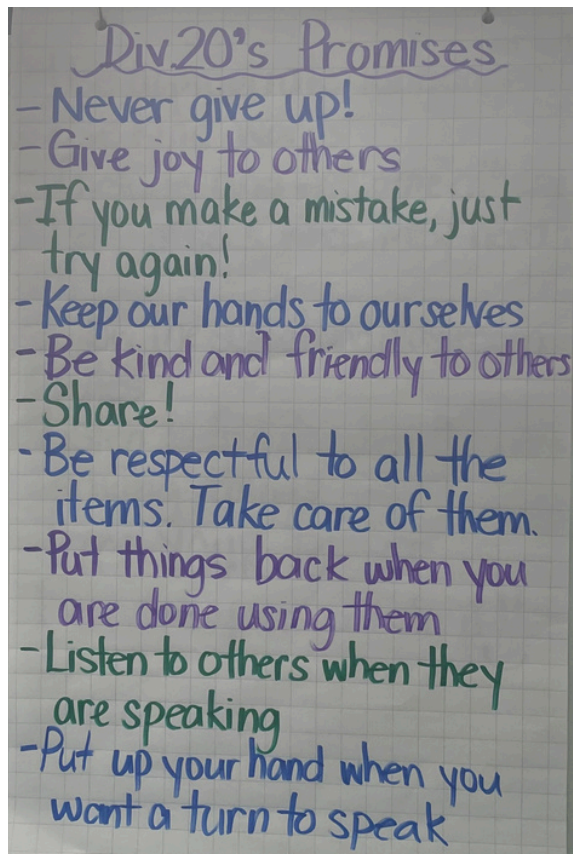 Div.20's Promises
- Never give up!
- Give joy to others
- If you make a mistake, just
try again!
- Keep our hands to ourselves
- Be kind and friendly to others
- Share!
- Be respectful to all the
items. Take care of them.
- Put things back when you
are done using them
- Listen to others when they
are speaking
- Put up your hand when you
want a turn to speak